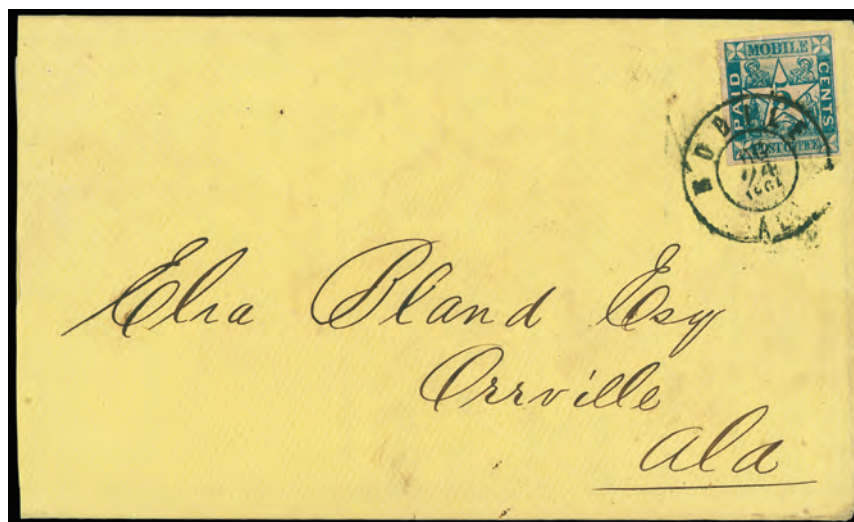 MOBILE
PAID
5
CENTS
POST OFFICE
MOBILE
24
1861
ALA
Elia Bland Esq
Orrville
Ala